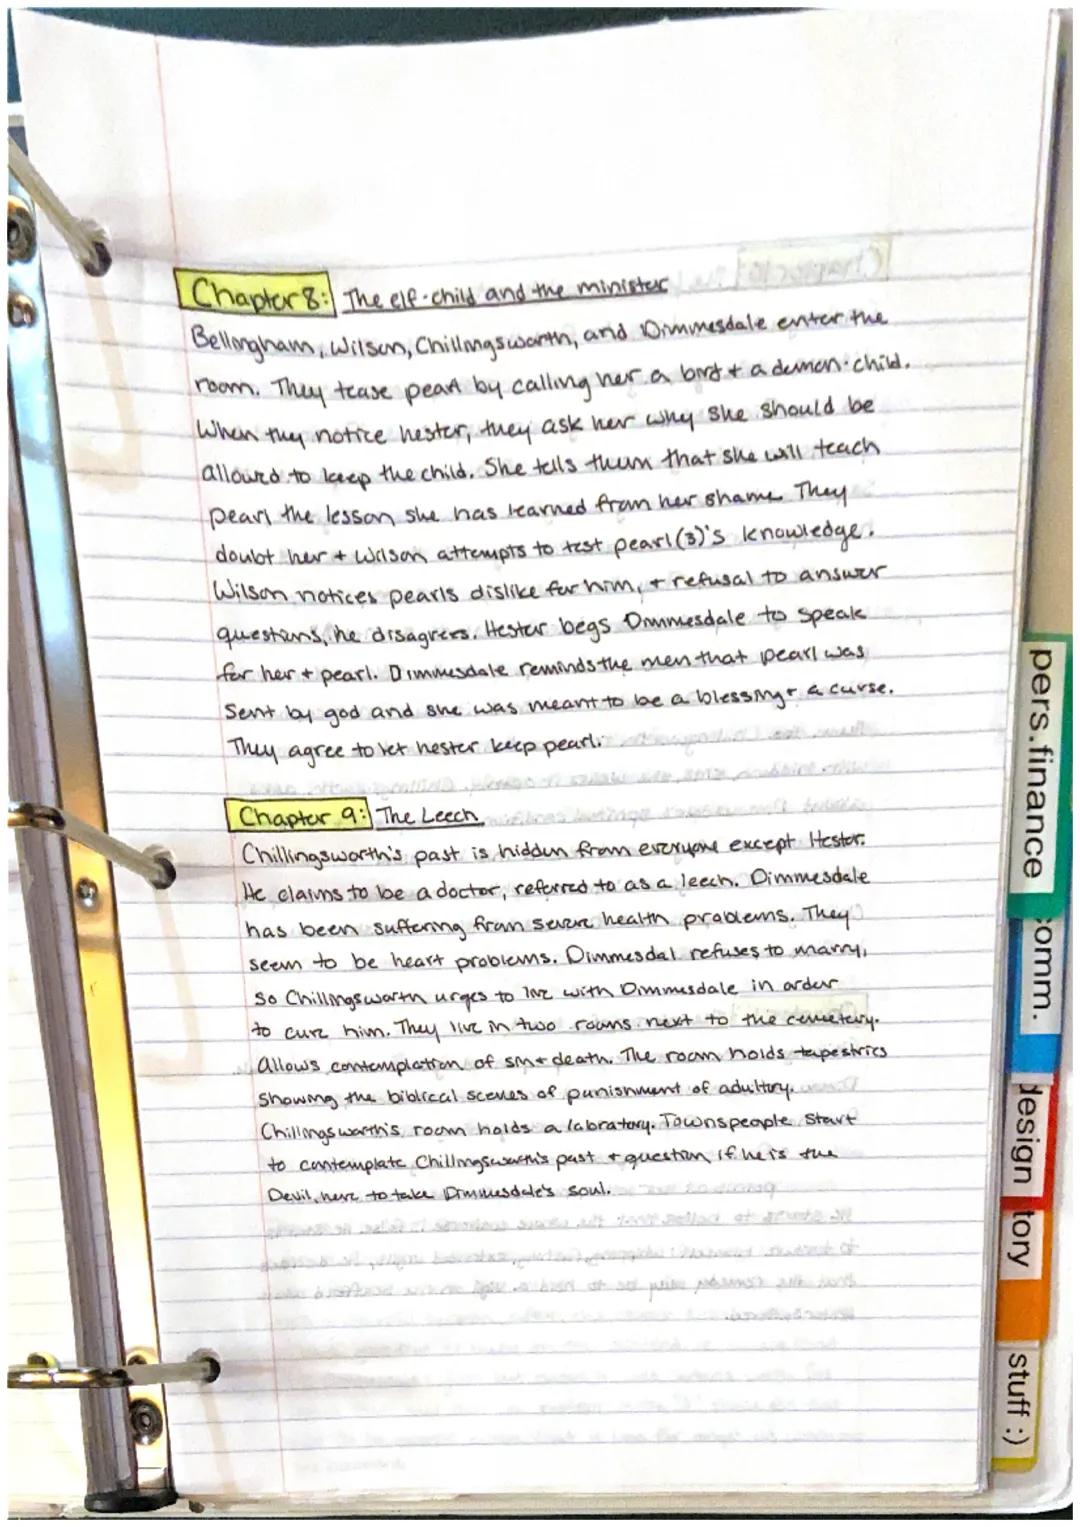 Chapter 8: The elf-child and the minister
Bellingham, Wilson, Chillingsworth, and Dimmesdale enter the
room. They tease pearl by calling her a bird + a demon-child.
When they notice hester, they ask her why she should be
allowed to keep the child. She tells them that she will teach
pearl the lesson she has learned from her shame They
doubt her + Wilson attempts to test pearl(3)'s knowledge.
Wilson notices pearls dislike for him, + refusal to answer
questions, he disagrees. Hester begs Dimmesdale to speak
for her + pearl. Dimmesdale reminds the men that pearl was
Sent by god and she was meant to be a blessing + a curse.
They agree to let hester keep pearl.
Chapter 9: The Leech
Chillingsworth's past is hidden from everyone except Hester.
He claims to be a doctor, referred to as a leech. Dimmesdale
has been suffering from severe health problems. They
seem to be heart problems. Dimmesdal refuses to marry,
so Chillingsworth urges to live with Dimmesdale in order
to cure him. They live in two rooms next to the cemetery.
Allows contemplation of sin + death. The room holds tapestries
Showing the biblical scenes of punishment of adultury.
Chillingsworth's room holds a labratory. Townspeople start
to contemplate Chillingsworth's past + question if he is the
Devil, here to take Dimmesdale's soul.
pers.finance
comm.
design
tory
stuff :)